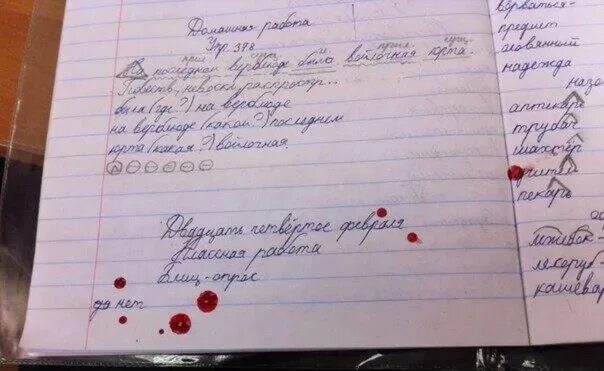 Домашняя работа
Упр. 378
прил. сущ. г. прил. сущ.
На последнем верблюде была войлочная юрта
Повеств., невоскл., распростр..
была (где?) на верблюде
на верблюде (каком?) последнем
юрта (какая?) войлочная.
Двадцать четвёртое февраля
Классная работа
Блиц-опрос
да нет
ворваться-
предмет
надежда
назо
аптекарь
трубач
шахтёр
пекарь
лесоруб-
кашевар